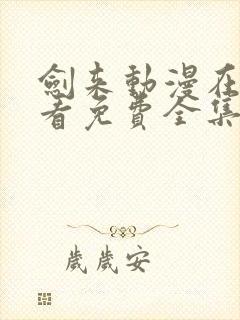 劍来動漫在
看免費全集
歲歲安